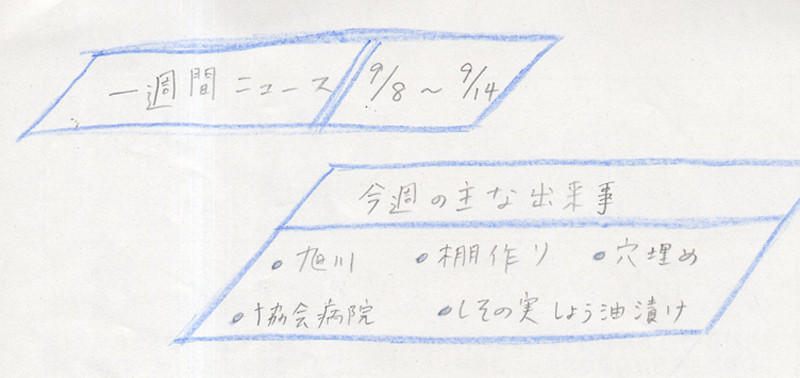 一週間ニュース 9/8〜9/14
今週の主な出来事
・旭川 ・棚作り ・穴埋め
・協会病院 ・しその実しょう油漬け